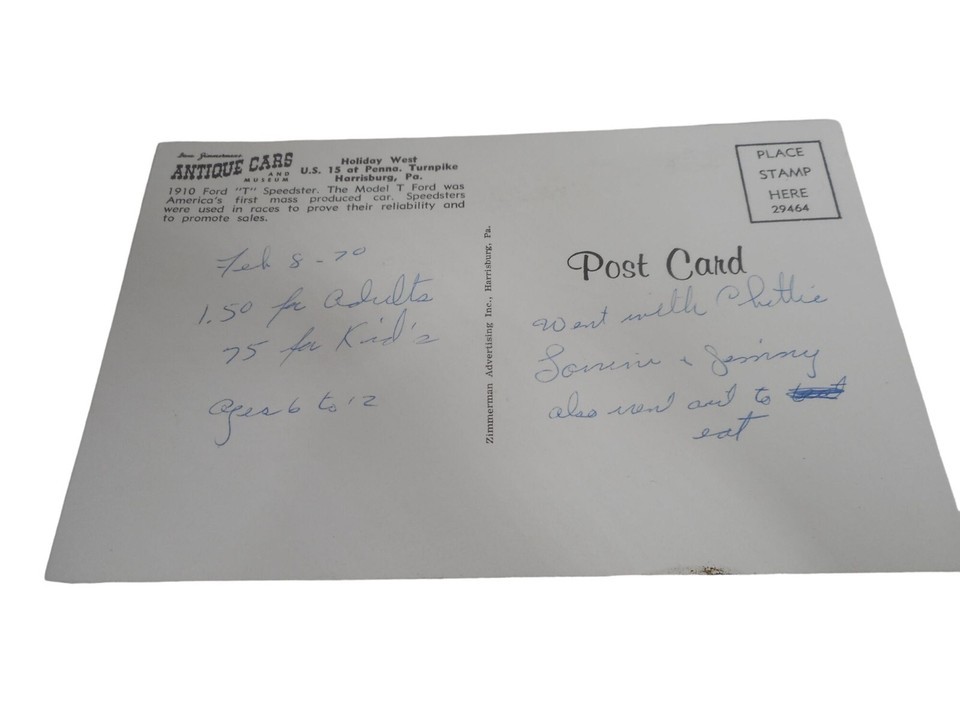 Dave Zimmerman's
ANTIQUE CARS
AND
MUSEUM
Holiday West
U.S. 15 at Penna. Turnpike
Harrisburg, Pa.
1910 Ford "T" Speedster. The Model T Ford was
America's first mass produced car. Speedsters
were used in races to prove their reliability and
to promote sales.
Feb 8-70
1.50 for adults
75 for Kid's
ages 6 to 12
Zimmerman Advertising Inc., Harrisburg, Pa.
PLACE
STAMP
HERE
29464
Post Card
Went with
& Jimmy
also went out to
eat